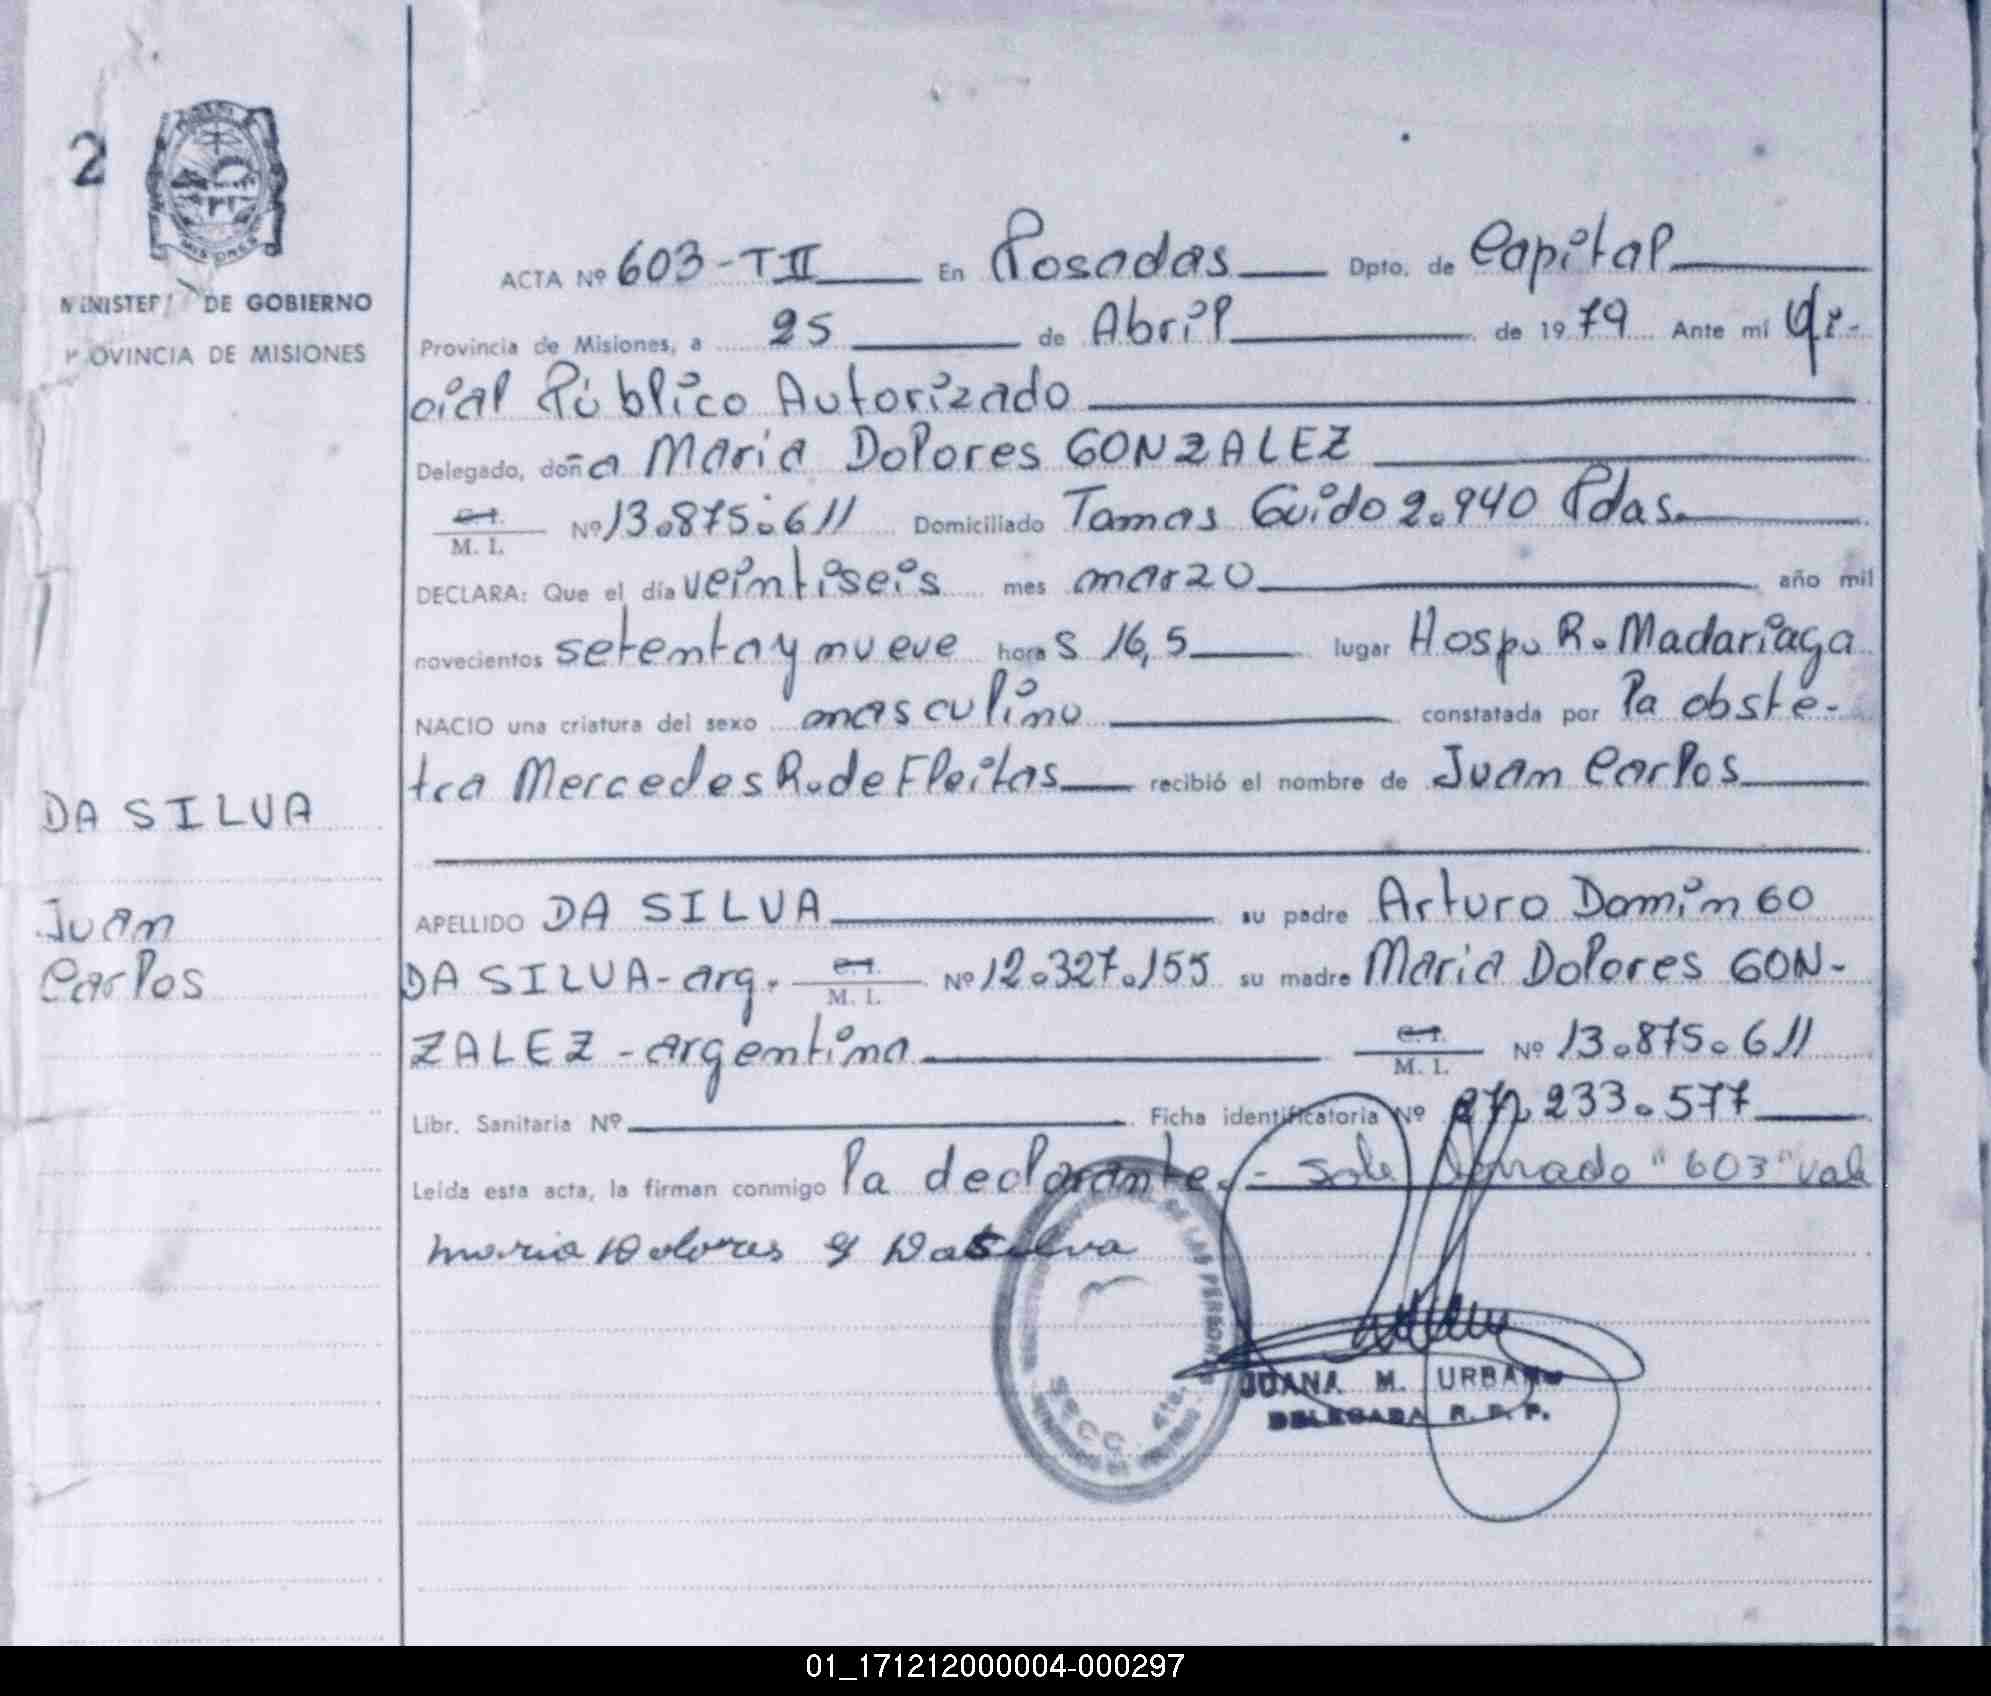 2
MISIONES
MINISTERI DE GOBIERNO
PROVINCIA DE MISIONES
ACTA Nº 603-TII En Posadas Dpto. de Capital
Provincia de Misiones, a 25 de Abril de 1979 Ante mí Ofi-
cial Público Autorizado
Delegado, doña Maria Dolores GONZALEZ
C.I. M. I. Nº 13.875.611 Domiciliado Tomas Guido 2.940 Pdas.
DECLARA: Que el día veintiseis mes marzo año mil
novecientos setenta y nueve horas 16,5 lugar Hosp. R. Madariaga
NACIO una criatura del sexo masculino constatada por la obste-
tra Mercedes R. de Fleitas recibió el nombre de Juan Carlos
DA SILVA
Juan
Carlos
APELLIDO DA SILVA su padre Arturo Domingo
DA SILVA - arg. C.I. M. I. Nº 12.327.155 su madre Maria Dolores GON-
ZALEZ - argentina C.I. M. I. Nº 13.875.611
Libr. Sanitaria Nº Ficha identificatoria Nº 27.233.577
Leída esta acta, la firman conmigo la declarante. - Sobre borrado "603" vale
Maria Dolores G DaSilva
DE LAS PERSONAS
SECC. 4ta.
JUANA M. URBANO
DELEGADA R. P. P.
01_171212000004-000297